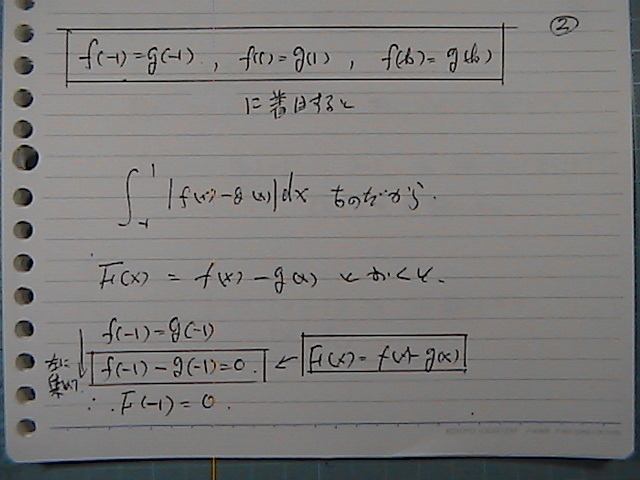 ②
f(-1)=g(-1), f(1)=g(1), f(b)=g(b)
に着目すると
∫_{-1}^{1} |f(x)-g(x)|dx なのだから.
F(x) = f(x) - g(x) とかくと、
f(-1)=g(-1)
左に集めて ↓ f(-1)-g(-1)=0. ← F(x)=f(x)-g(x)
∴ F(-1)=0.